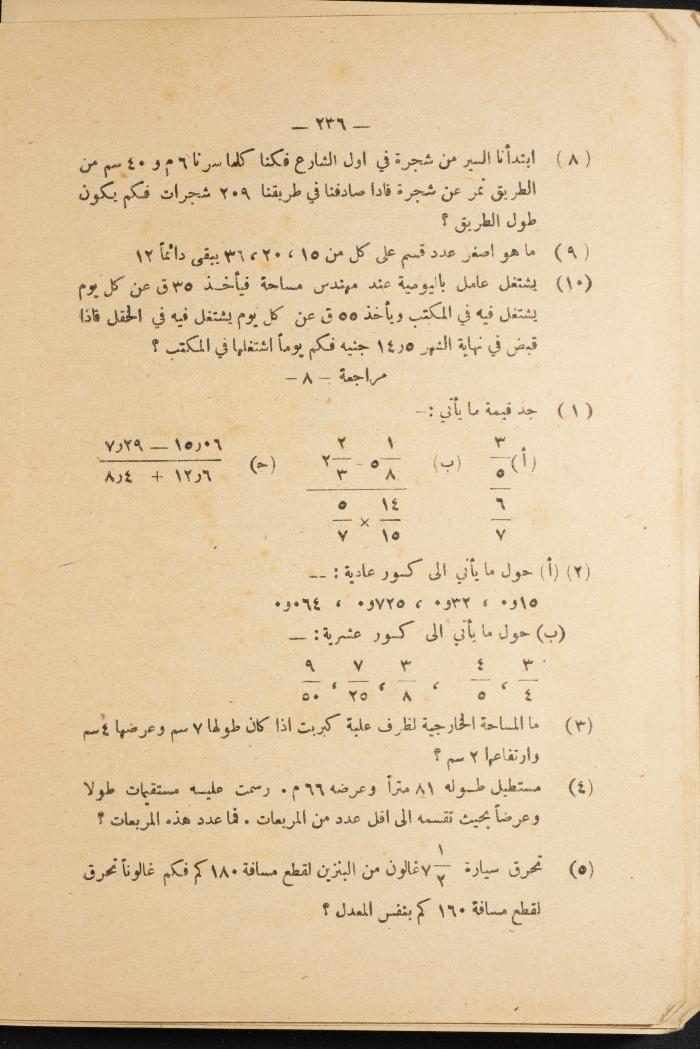 — ٢٣٦ —
(٨) ابتدأنا السير من شجرة في اول الشارع فكنا كلما سرنا ٦ م و ٤٠ سم من
الطريق نمر عن شجرة فاذا صادفنا في طريقنا ٢٠٩ شجرات فكم يكون
طول الطريق ؟
(٩) ما هو اصغر عدد قسم على كل من ١٥ ، ٢٠ ، ٣٦ يبقى دائماً ١٢
(١٠) يشتغل عامل باليومية عند مهندس مساحة فيأخذ ٣٥ ق عن كل يوم
يشتغل فيه في المكتب ويأخذ ٥٥ ق عن كل يوم يشتغل فيه في الحقل فاذا
قبض في نهاية الشهر ١٤٫٥ جنيه فكم يوماً اشتغلها في المكتب ؟
مراجعة — ٨ —
(١) جد قيمة ما يأتي :—
(أ) ٣/٥ / ٦/٧ (ب) ٥ ١/٨ - ٢ ٢/٣ / ١٤/١٥ × ٥/٧ (ح) ١٥٫٠٦ — ٧٫٢٩ / ١٢٫٦ + ٨٫٤
(٢) (أ) حول ما يأتي الى كسور عادية : —
٠٫١٥ ، ٠٫٣٢ ، ٠٫٧٢٥ ، ٠٫٠٦٤
(ب) حول ما يأتي الى كسور عشرية : —
٣/٤ ، ٤/٥ ، ٣/٨ ، ٧/٢٥ ، ٩/٥٠
(٣) ما المساحة الخارجية لظرف علبة كبريت اذا كان طولها ٧ سم وعرضها ٤ سم
وارتفاعها ٢ سم ؟
(٤) مستطيل طوله ٨١ متراً وعرضه ٦٦ م . رسمت عليه مستقيمات طولا
وعرضاً بحيث تقسمه الى اقل عدد من المربعات . فما عدد هذه المربعات ؟
(٥) تحرق سيارة ٧ ١/٢ غالون من البنزين لقطع مسافة ١٨٠ كم فكم غالوناً تحرق
لقطع مسافة ١٦٠ كم بنفس المعدل ؟